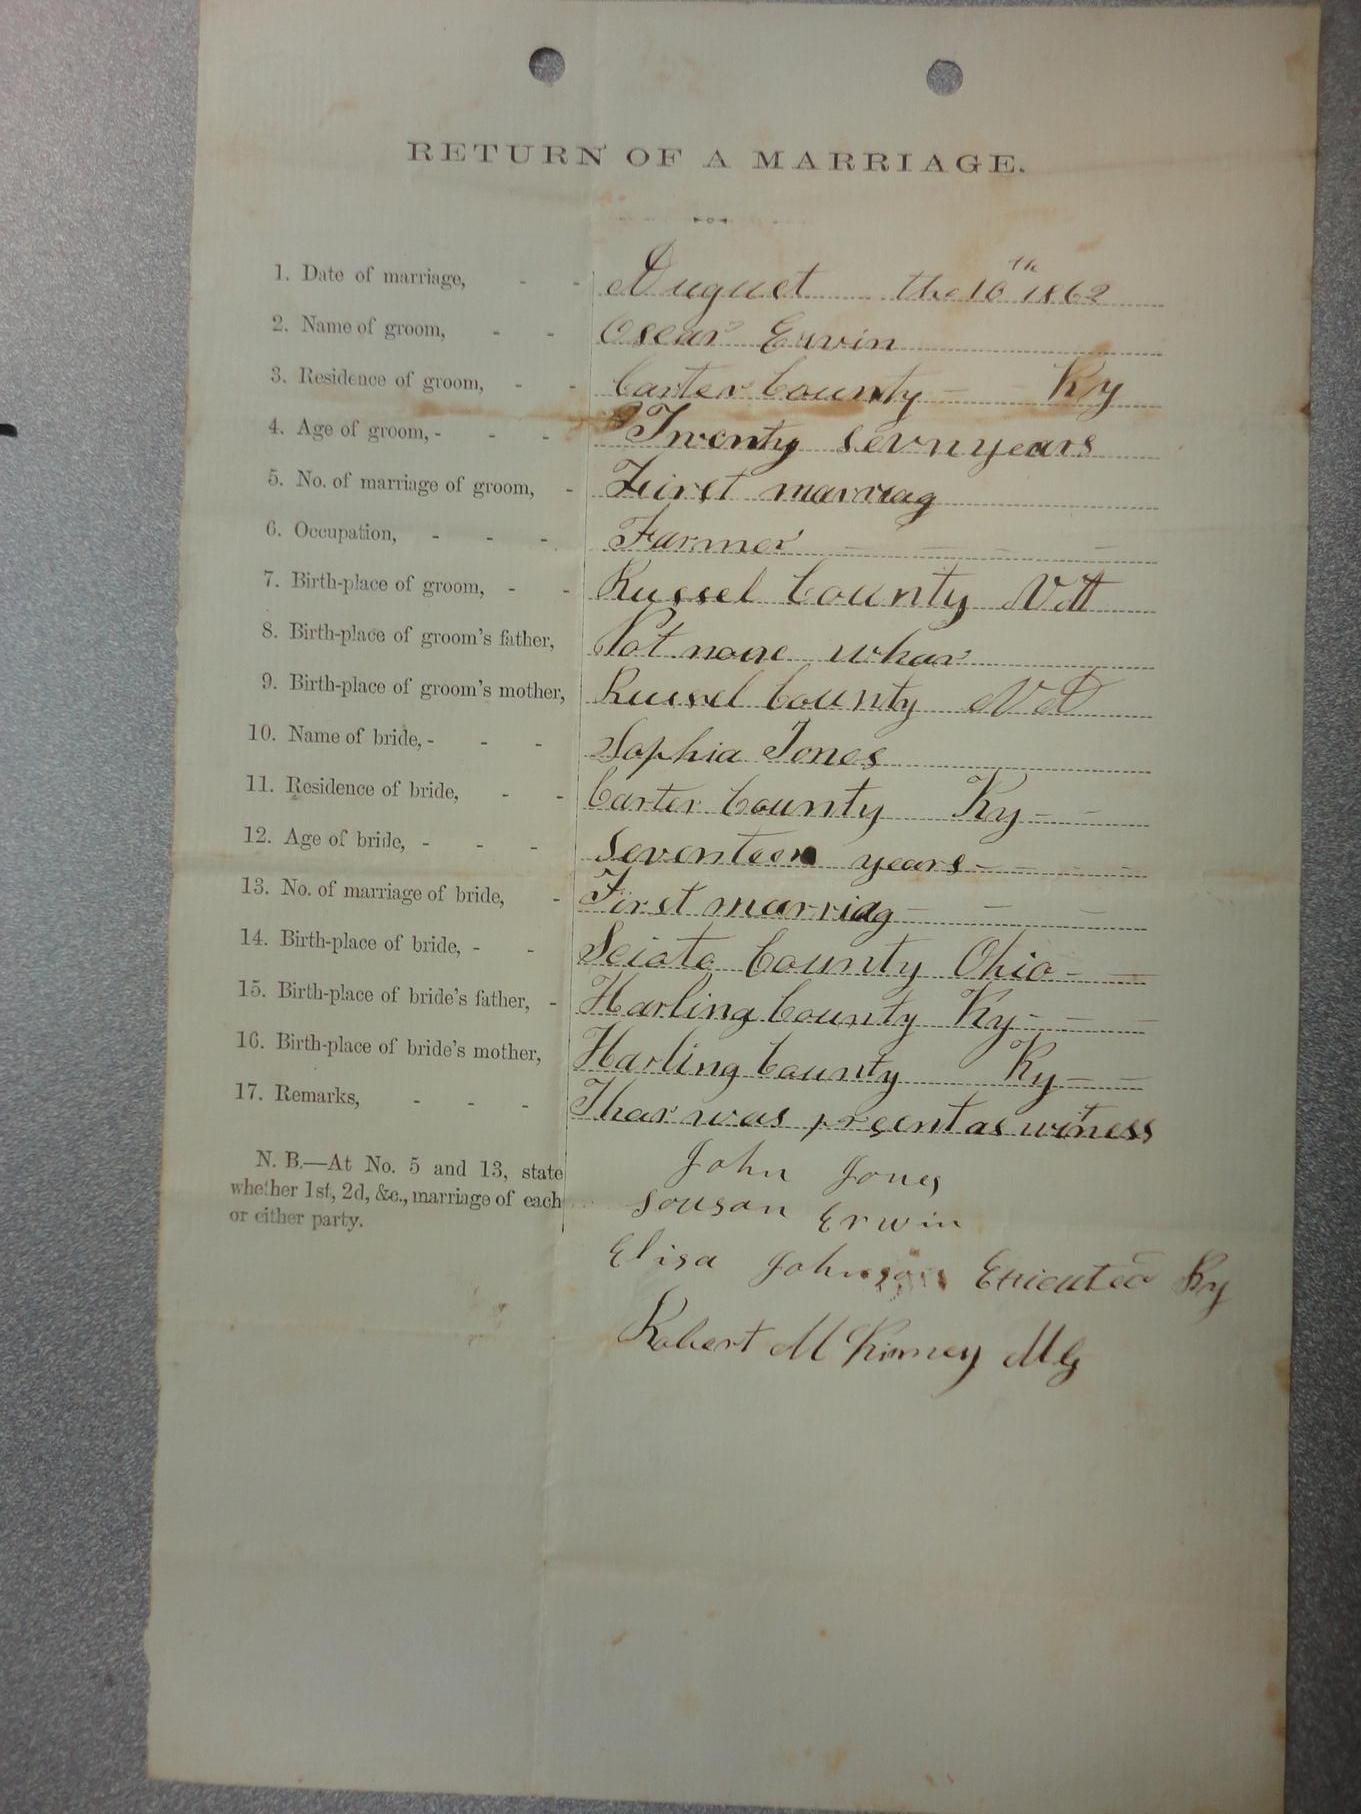 RETURN OF A MARRIAGE.
1. Date of marriage, - - August the 10th 1862
2. Name of groom, - - Oscar Erwin
3. Residence of groom, - - Carter County - - Ky
4. Age of groom, - - - Twenty sevn years
5. No. of marriage of groom, - First marriag
6. Occupation, - - - Farmer - - - -
7. Birth-place of groom, - - Russel County
8. Birth-place of groom's father, Not none whar
9. Birth-place of groom's mother, Russel County
10. Name of bride, - - - Sophia Jones
11. Residence of bride, - - Carter County Ky - -
12. Age of bride, - - - Seventeen years - - - -
13. No. of marriage of bride, - First marriag - - -
14. Birth-place of bride, - - Sciato County Ohio - -
15. Birth-place of bride's father, - Harling County Ky - - -
16. Birth-place of bride's mother, Harling County Ky - -
17. Remarks, - - - Thar was preent as witness
John Jones
N. B.—At No. 5 and 13, state
whether 1st, 2d, &c., marriage of each
or either party.
Sousan Erwin
Elisa Johnson By
Robert McKinney MG